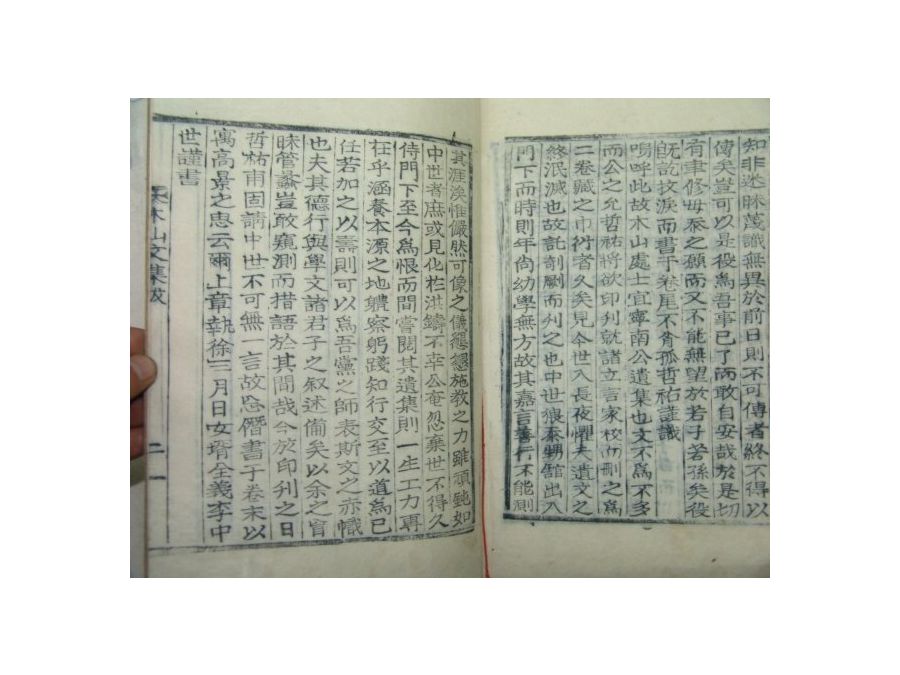 知非迷昧蔑識無異於前日則不可傳者終不得以
傳矣豈可以是役爲吾事已了而敢自安哉於是切
有聿修毋忝之願而又不能無望於若子若孫矣役
旣訖抆淚而書于卷尾不肖孤哲祐謹識
嗚呼此故木山處士宜寧南公遺集也文不爲不多
而公之允哲祐將欲印刊就諸立言家校而刪之爲
二卷藏之巾衍者久矣見今世入長夜懼夫遺文之
終泯滅也故託剞劂而刊之也中世猥忝甥館出入
門下而時則年尙幼學無方故其嘉言善行不能測
其涯涘惟儼然可像之儀懇懇施敎之力雖頑鈍如
中世者庶或見化於洪鑄不幸公奄忽棄世不得久
侍門下至今爲恨而間嘗閱其遺集則一生工力再
在乎涵養本源之地聽察躬踐知行交至以道爲已
任若加之以壽則可以爲吾黨之師表斯文之赤幟
也夫其德行與學文諸君子之叙述備矣以余之盲
昧管蠡豈敢窺測而措語於其間哉今於印刊之日
哲祐甫固請中世不可無一言故忘僭書于卷末以
寓高景之思云爾上章執徐三月日女壻全義李中
世謹書
木山文集跋
二